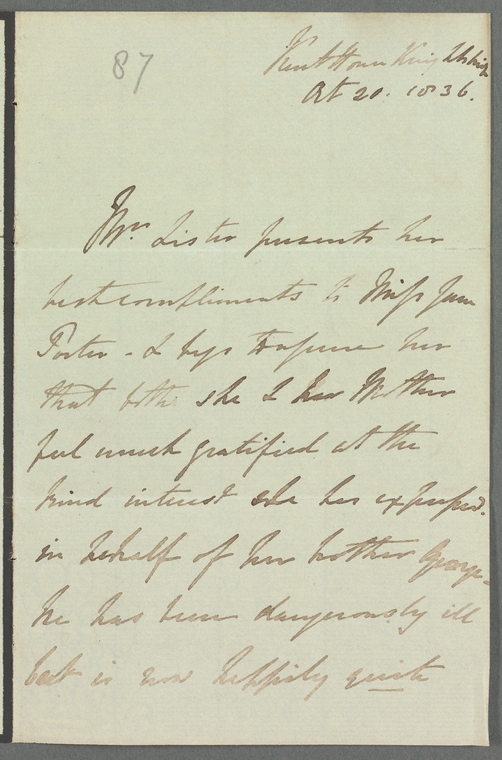 87
Kent House Knightsbridge
Oct 20. 1836.
Mrs. Lister presents her
best compliments to Miss Jane
Porter - & begs to assure her
that both she & her Mother
feel much gratified at the
kind interest she has expressed.
in behalf of her brother George -
he has been dangerously ill
but is now happily quite